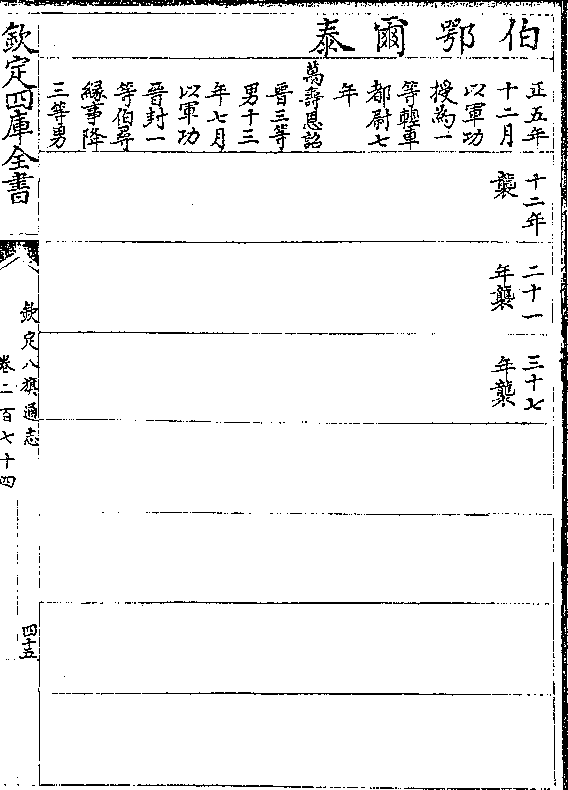 伯鄂爾泰
正五年
十二月
以軍功
授為一
等輕車
都尉七
年
萬壽恩詔
晉三等
男十三
年七月
以軍功
晉封一
等伯尋
緣事降
三等勇
十二年
襲
二十一
年襲
三十七
年襲
欽定四庫全書
欽定八旗通志
卷二百七十四
四十五